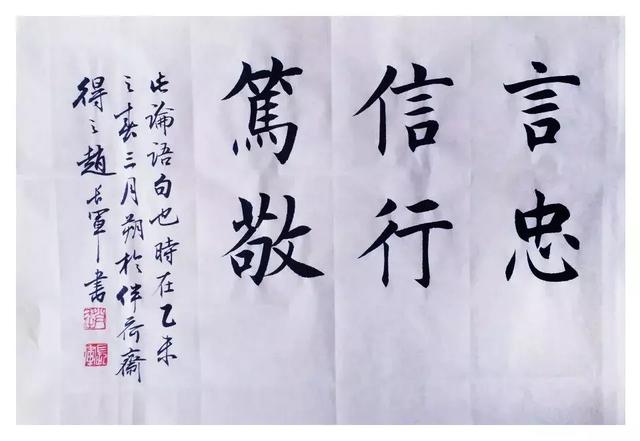 言忠
信行
篤敬
此論語句也時在乙未
之春三月朔於伴荷齋
得之趙長軍書